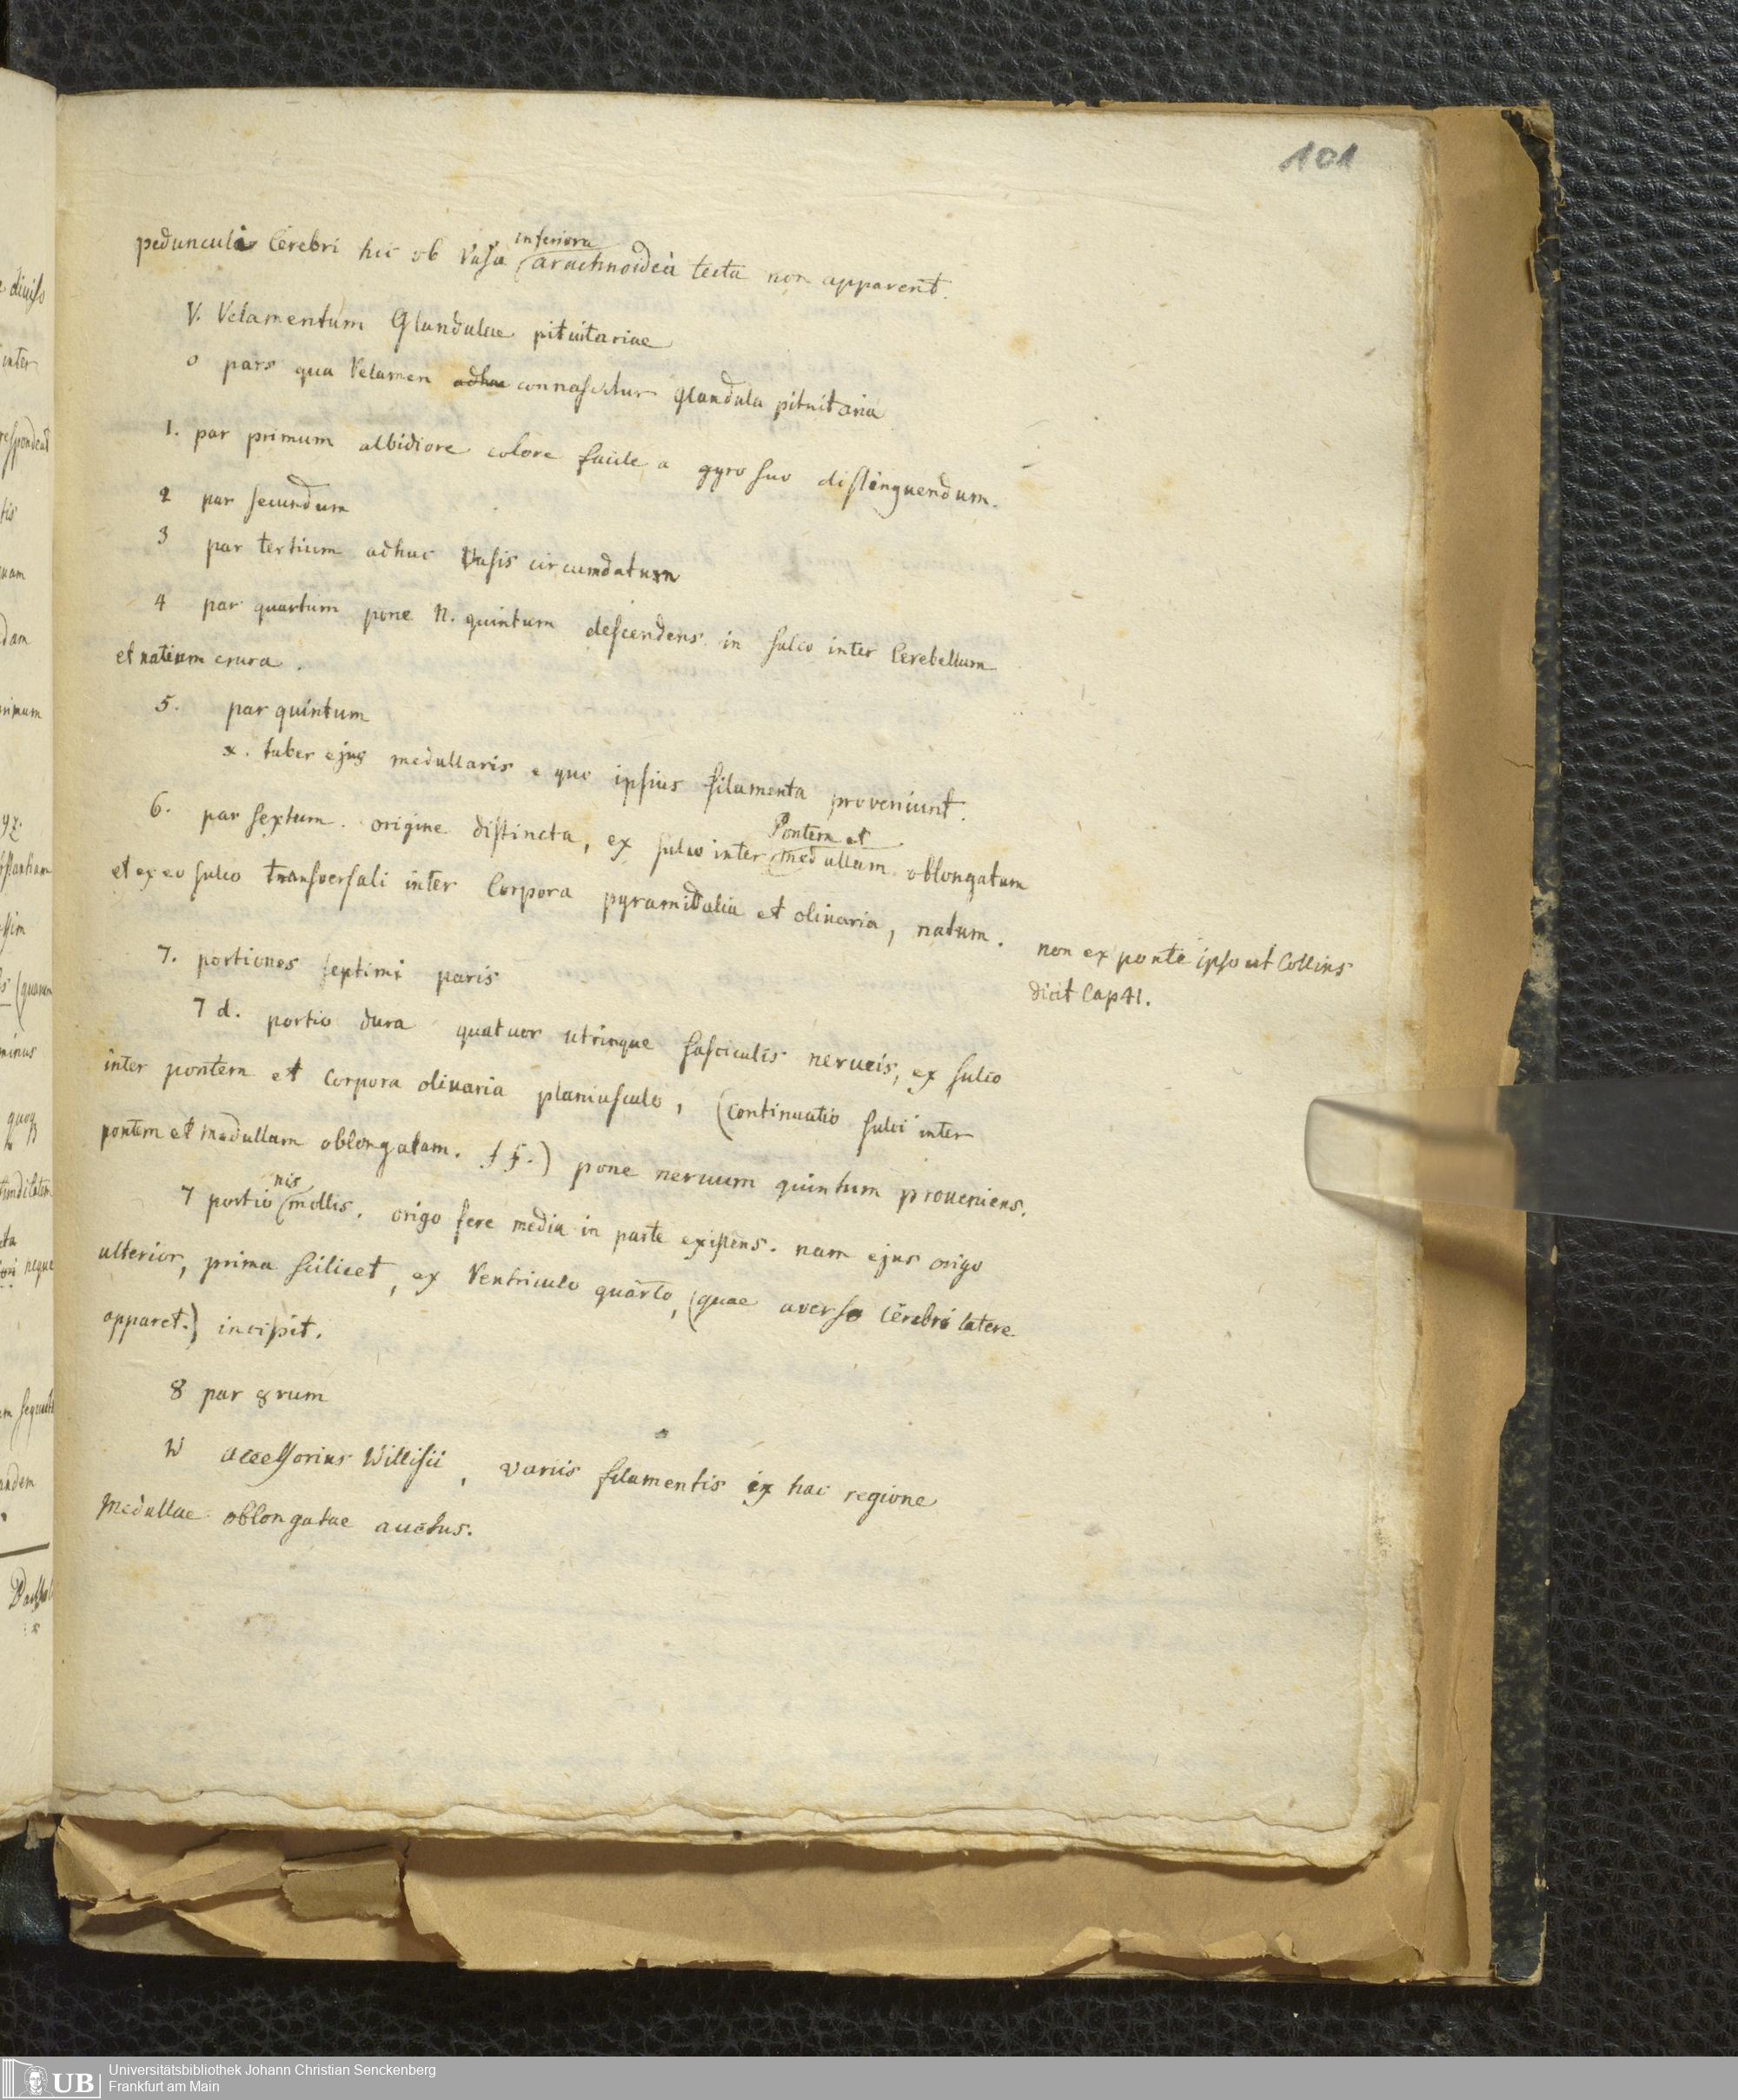 101
pedunculis Cerebri hic ob Vasa inferiora arachnoidea tecta non apparent.
V. Velamentum Glandulae pituitariae
o pars qua Velamen adhuc connascitur Glandula pituitaria
1. par primum albidiore colore facile a gyro suo distinguendum.
2 par secundum
3 par tertium adhuc Vasis circumdatum
4 par quartum pone N. quintum descendens in sulco inter Cerebellum
et natium crura.
5. par quintum
x. tuber ejus medullaris e quo ipsius filamenta proveniunt.
6. par sextum. origine distincta, ex sulco inter Pontem et medullam oblongatam
et ex eo sulco transversali inter Corpora pyramidalia et olivaria, natum.
non ex ponte ipso ut Collins
dicit Cap 41.
7. portiones septimi paris
7 d. portio dura quatuor utrinque fasciculis nerveis, ex sulco
inter pontem et Corpora olivaria planiusculo, (continuatio sulci inter
pontem et medullam oblongatam. ff.) pone nervum quintum proveniens.
7 portionis mollis. origo fere media in parte existens. nam ejus origo
ulterior, prima scilicet, ex Ventriculo quarto, (quae averso Cerebri latere
apparet.) incipit.
8 par 8vum
W accessorius Willisii, variis filamentis ex hac regione
Medullae oblongatae auctus.
UB
Universitätsbibliothek Johann Christian Senckenberg
Frankfurt am Main